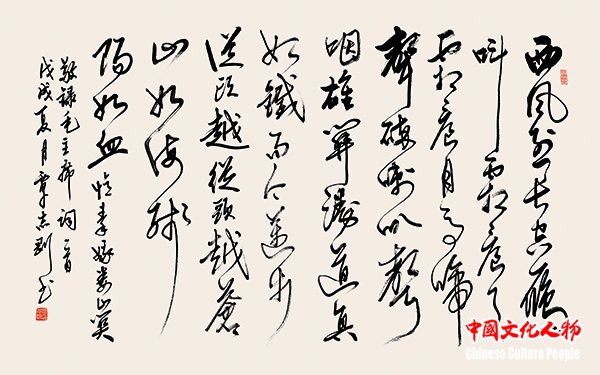 西风烈长空雁
叫霜晨月
霜晨月马蹄
聲碎喇叭聲
咽雄關漫道真
如鐵而今邁步
從頭越從頭越蒼
山如海殘
陽如血 憶秦娥婁山関
敬録毛主席詞一首
戊戌夏月
中国文化人物
Chinese Culture People